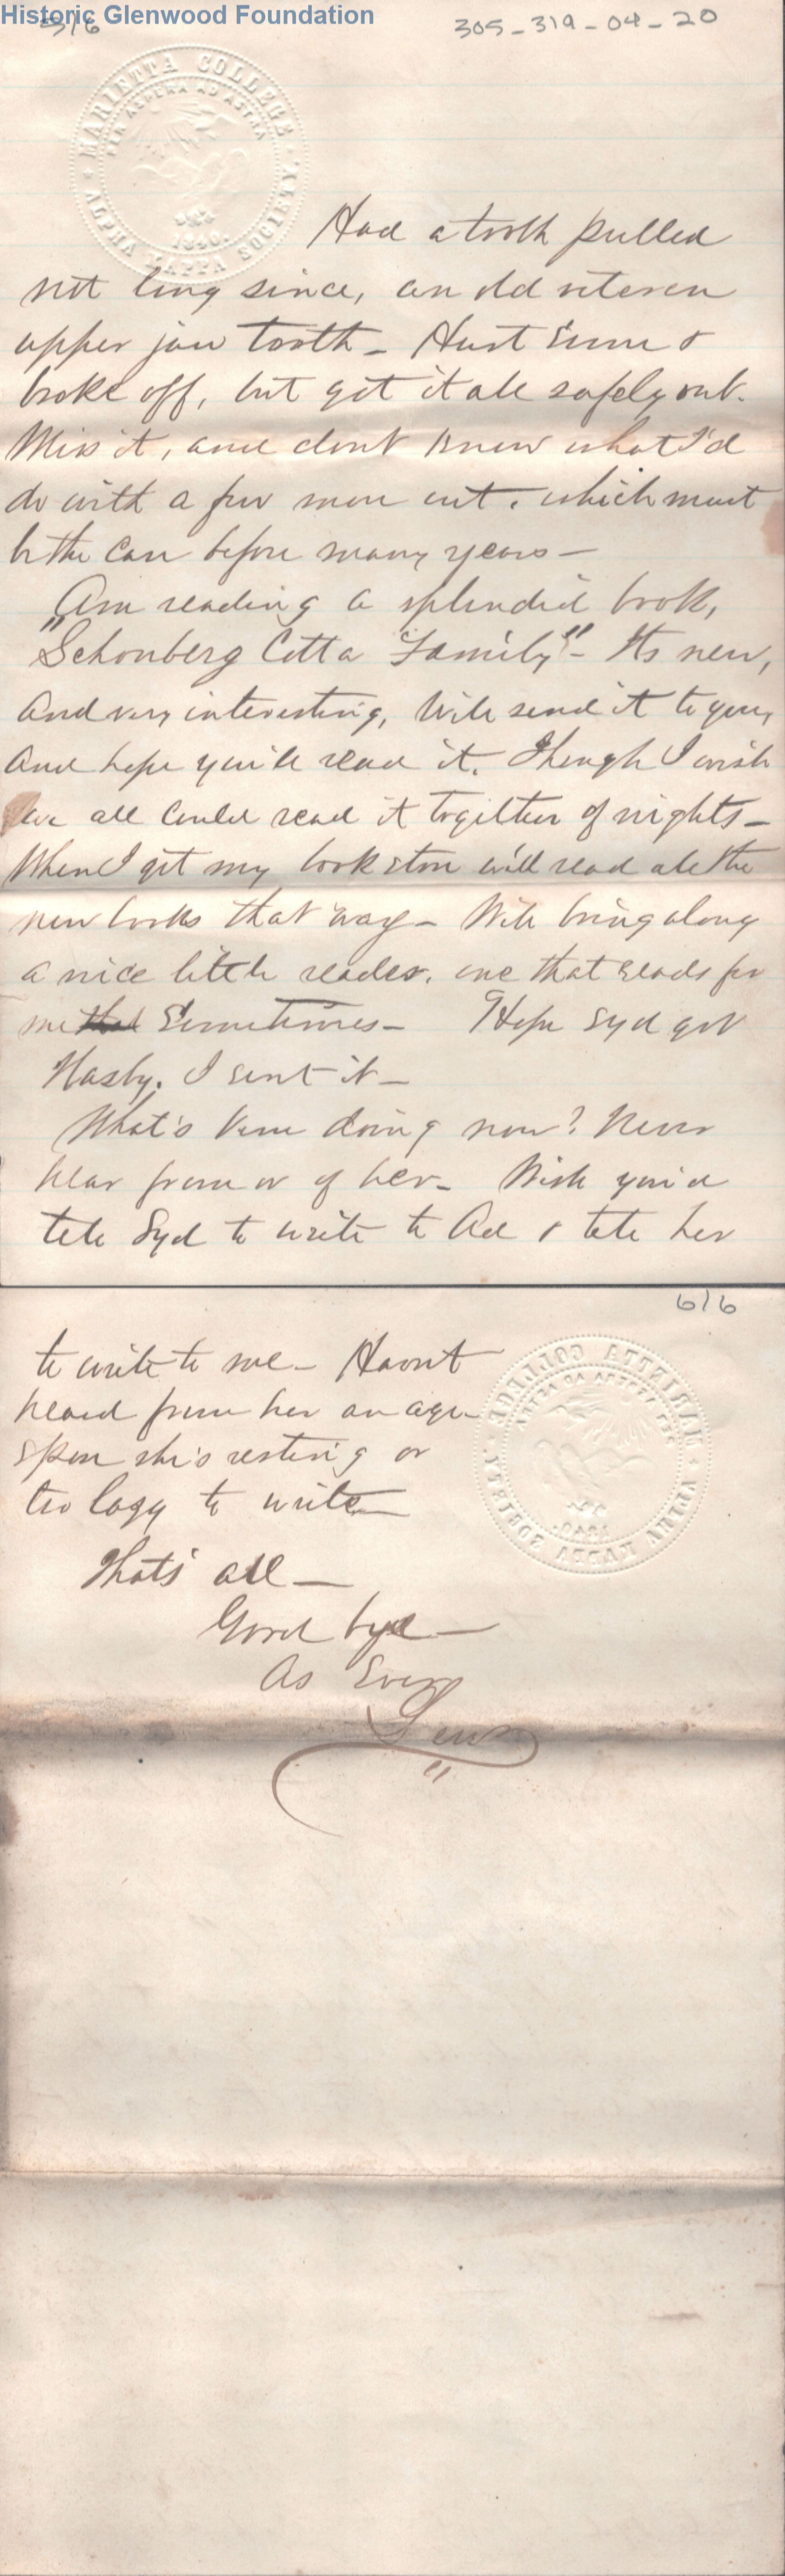 Historic Glenwood Foundation
5/6
305-319-04-20
MARIETTA COLLEGE
PER ASPERA AD ASTRA
1840.
ALPHA KAPPA SOCIETY.
Had a tooth pulled
not long since, an old veteran
upper jaw tooth - Hurt some &
broke off, but got it all safely out.
Miss it, and dont know what I'd
do with a few more out, which must
be the case before many years —
Am reading a splendid book,
"Schonberg Cotta Family" - Its new,
and very interesting, Will send it to you,
and hope you'll read it. Though I wish
we all could read it together of nights -
When I get my book store we'll read all the
new books that way - Will bring along
a nice little reader, one that reads for
me Sometimes - Hope Syd got
Nasby. I sent it -
What's doing now? Never
hear from or of her - Wish you'd
tell Syd to write to Ad & tell her
6/6
to write to me - Havnt
heard from her an age
spose she's resting or
too lazy to write
MARIETTA COLLEGE
PER ASPERA AD ASTRA
1840.
ALPHA KAPPA SOCIETY.
Thats all —
Good bye —
As Ever
Lew